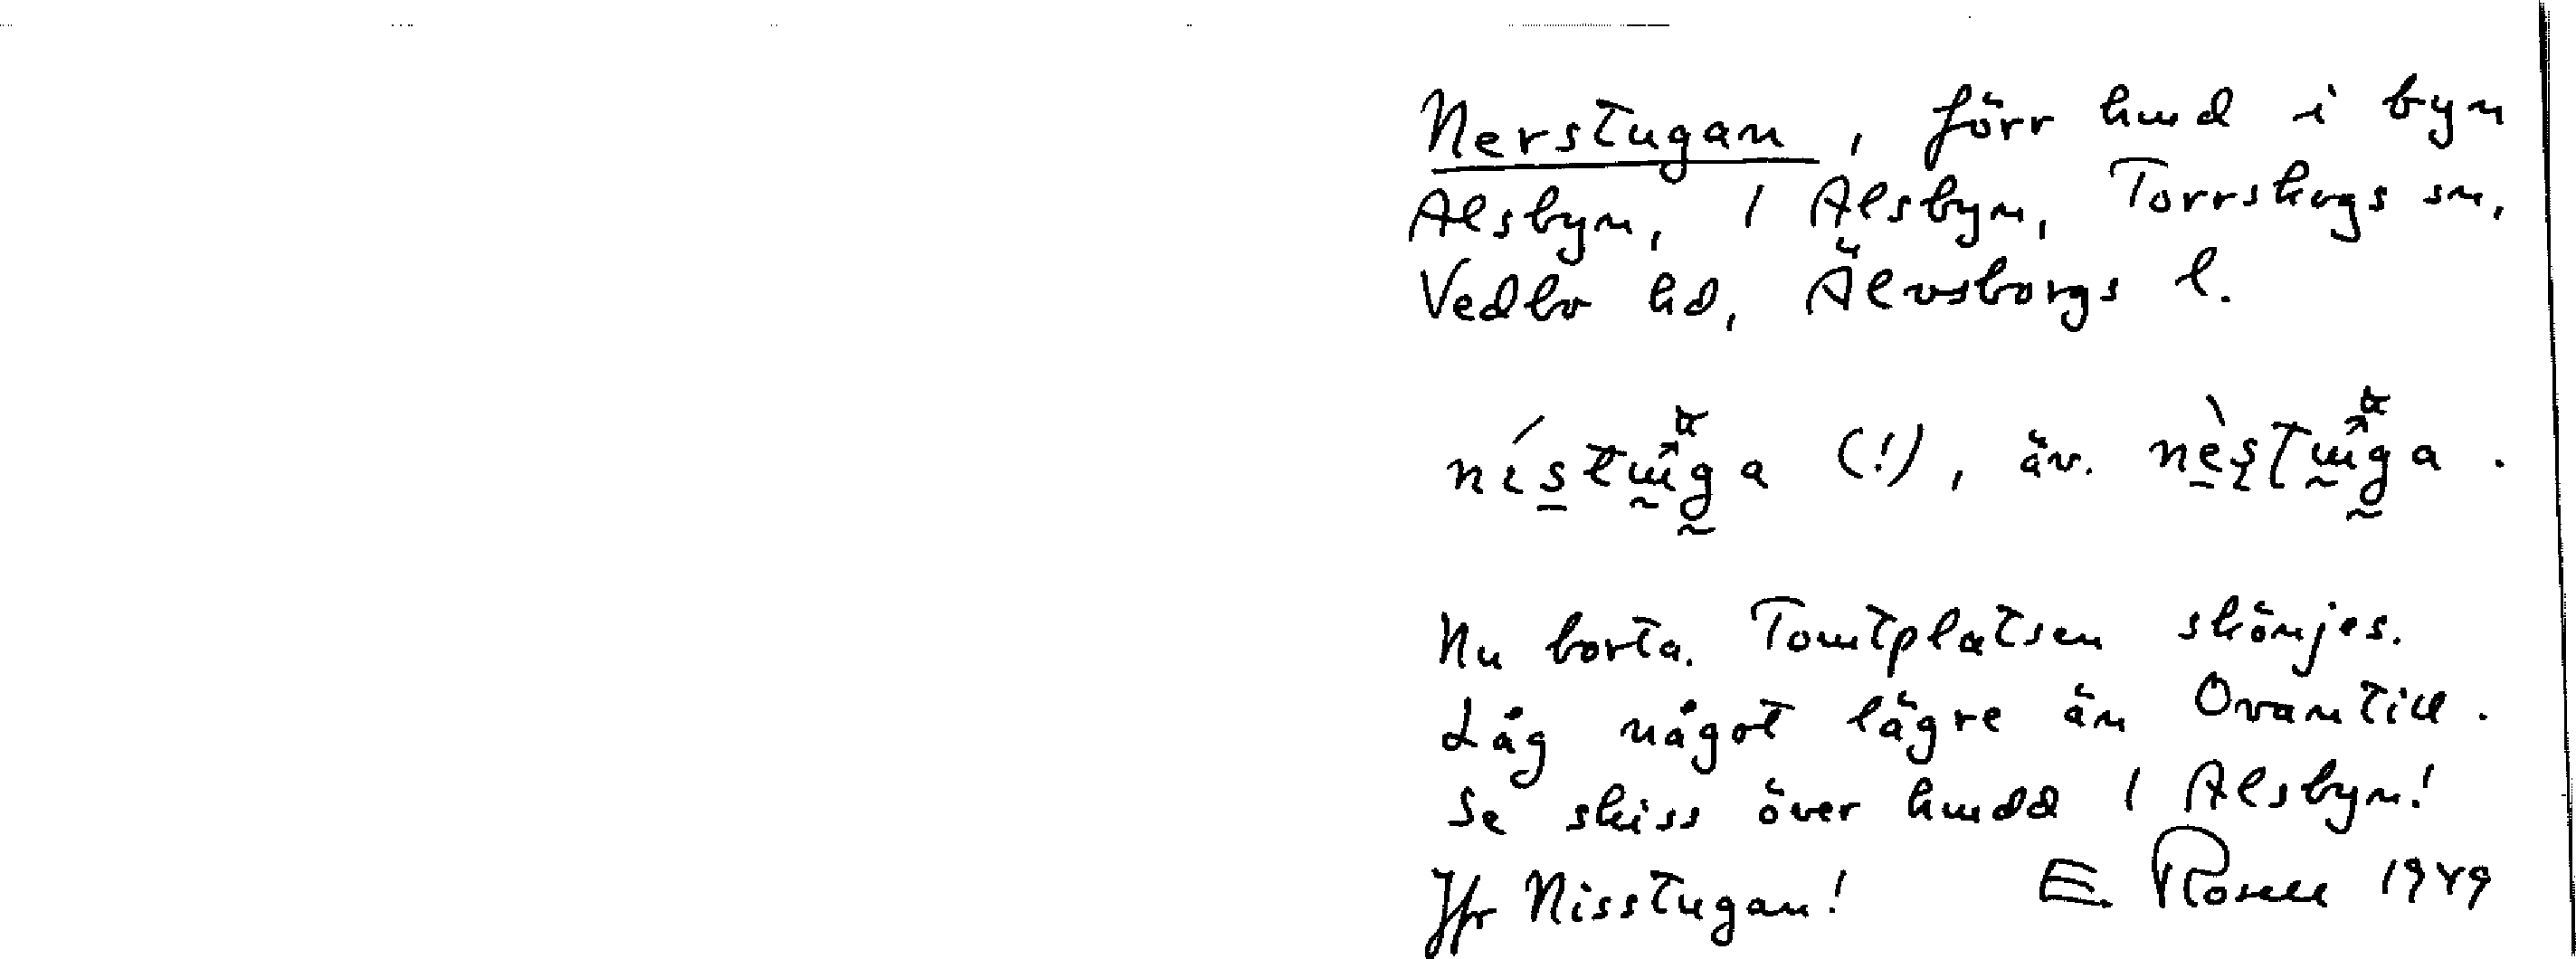 Nerstugan, förr hmd i byn
Alsbyn, 1 Alsbyn, Torrskogs sn,
Vedbo hd, Älvsborgs l.
(!), äv.
Nu borta. Tomtplatsen skönjes.
Låg något lägre än Ovantill.
Se skiss över hmdd 1 Alsbyn!
Jfr Nisstugan! E. Rosell 1949